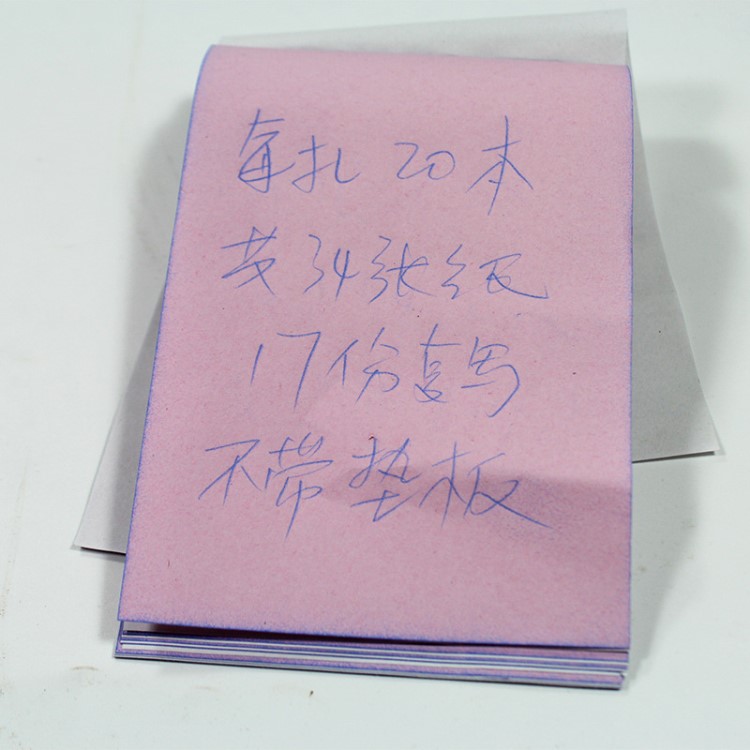 每扎20本
共34张纸
17份复写
不带垫板